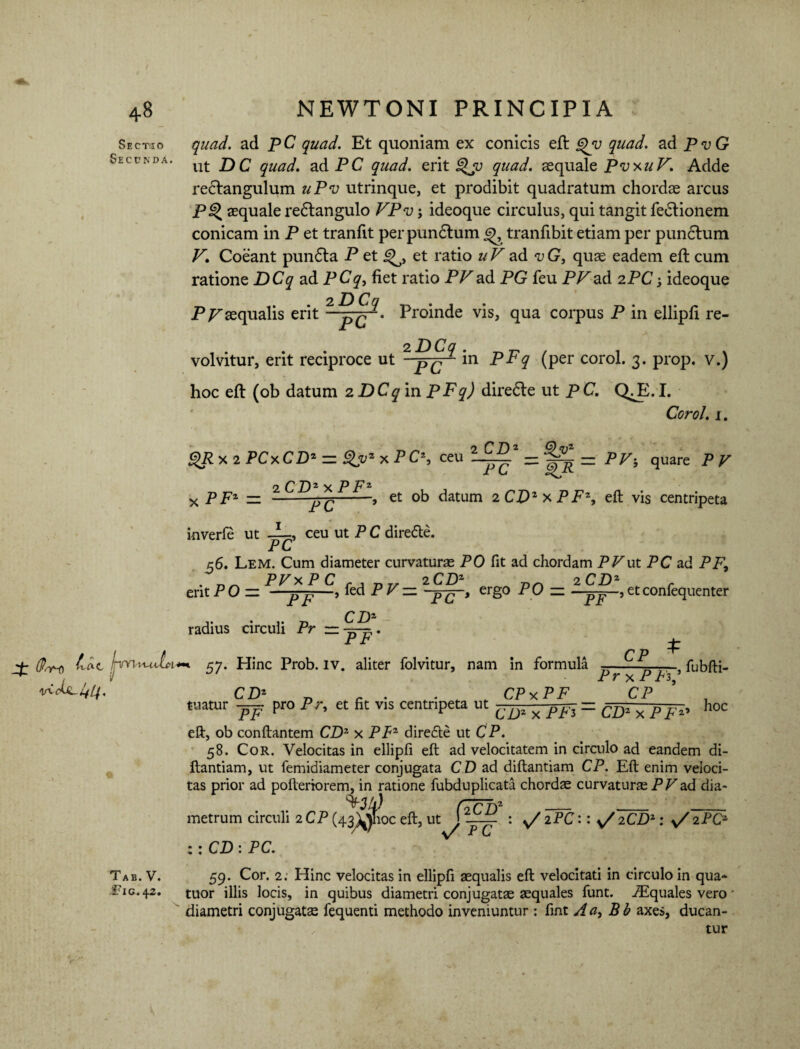 48 NEWTONI PRINCIPIA
SECTIO SECUNDA.
quad. ad PC quad. Et quoniam ex conicis eſt Qv quad. ad PvG
ut DC quad. ad PC quad. erit Qv quad. æquale Pv×uV. Adde
rectangulum uPv utrinque, et prodibit quadratum chordæ arcus
PQ æquale rectangulo VPv; ideoque circulus, qui tangit ſectionem
conicam in P et tranſit per punctum Q, tranſibit etiam per punctum
V. Coëant puncta P et Q, et ratio uV ad vG, quæ eadem eſt cum
ratione DCq ad PCq, fiet ratio PV ad PG ſeu PV ad 2PC; ideoque
PV æqualis erit 2DCq/PC. Proinde vis, qua corpus P in ellipſi re-
volvitur, erit reciproce ut 2DCq/PC in PFq (per corol. 3. prop. v.)
hoc eſt (ob datum 2DCq in PFq) directe ut PC. Q.E.I.
Corol. 1.
QR × 2 PC×CD² = Qv² × PC², ceu 2CD²/PC = Qv²/QR = PV; quare PV
× PF² = 2CD²×PF²/PC, et ob datum 2CD²×PF², eſt vis centripeta
inverſe ut 1/PC, ceu ut PC directe.
56. LEM. Cum diameter curvaturæ PO ſit ad chordam PV ut PC ad PF,
erit PO = PV×PC/PF, ſed PV = 2CD²/PC, ergo PO = 2CD²/PF, et conſequenter
radius circuli Pr = CD²/PF.
57. Hinc Prob. IV. aliter ſolvitur, nam in formula CP/Pr × PF³, ſubſti-
tuatur CD²/PF pro Pr, et fit vis centripeta ut CP×PF/CD²×PF³ = CP/CD²×PF², hoc
eſt, ob conſtantem CD² × PF² directe ut CP.
58. COR. Velocitas in ellipſi eſt ad velocitatem in circulo ad eandem di-
ſtantiam, ut ſemidiameter conjugata CD ad diſtantiam CP. Eſt enim veloci-
tas prior ad poſteriorem, in ratione ſubduplicatâ chordæ curvaturæ PV ad dia-
metrum circuli 2CP (43) hoc eſt, ut √2CD²/PC : √2PC :: √2CD² : √2PC²
:: CD : PC.
TAB. V.
FIG. 42.
59. Cor. 2. Hinc velocitas in ellipſi æqualis eſt velocitati in circulo in qua-
tuor illis locis, in quibus diametri conjugatæ æquales ſunt. Æquales vero
diametri conjugatæ ſequenti methodo inveniuntur: ſint Aa, Bb axes, ducan-
tur
± Pro hac formula
vide 44.
34